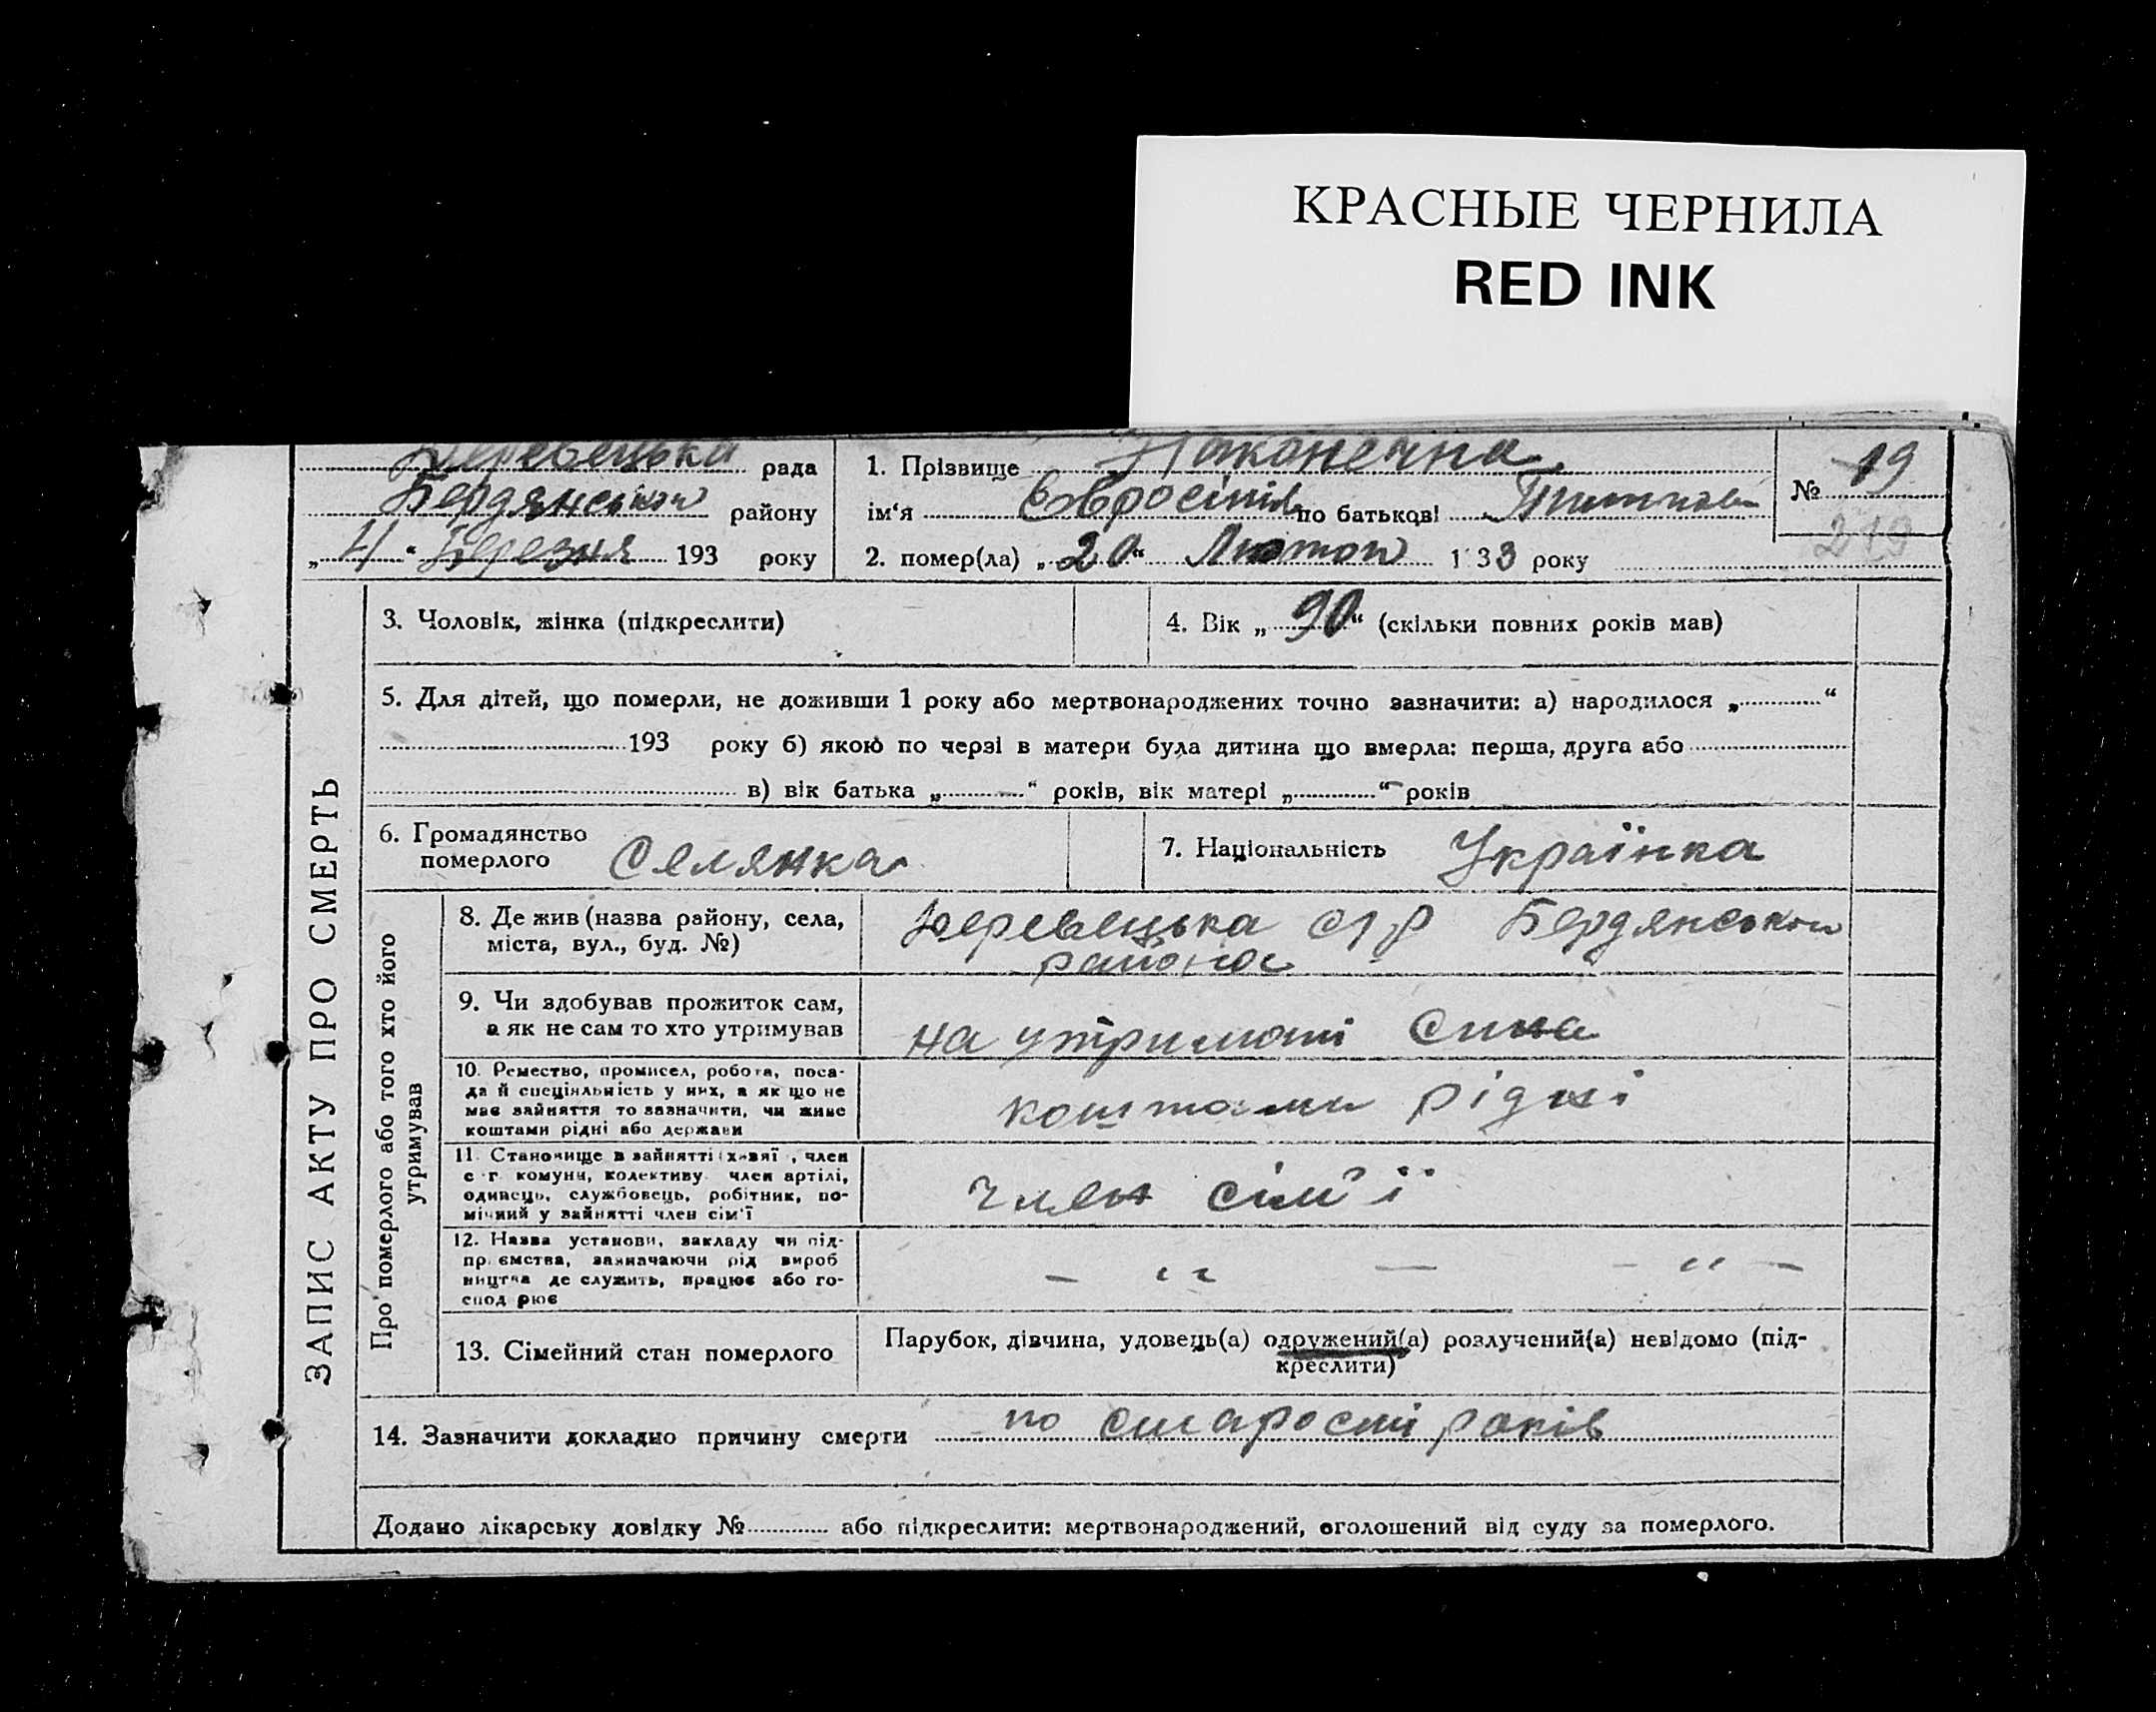 КРАСНЫЕ ЧЕРНИЛА
RED INK
рада
Бердянського району
„ 4 “ Березня 193 року
1. Прізвище Наконечна
ім‘я Євросінія по батькові
2. помер(ла) „ 20 “ Лютого 1 33 року
№ 19
219
ЗАПИС АКТУ ПРО СМЕРТЬ
3. Чоловік, жінка (підкреслити)
4. Вік „ 90 “ (скільки повних років мав)
5. Для дітей, що померли, не доживши 1 року або мертвонароджених точно зазначити: а) народилося „ “
193 року б) якою по черзі в матери була дитина що вмерла: перша, друга або
в) вік батька „ “ років, вік матері „ “ років
6. Громадянство
померлого Селянка
7. Національність Українка
Про померлого або того хто його
утримував
8. Де жив (назва району, села,
міста, вул., буд. №)
с/р Бердянського
района
9. Чи здобував прожиток сам,
а як не сам то хто утримував
на утриманні сина
10. Ремество, промисел, робота, поса-
да й спеціяльність у них, а як що не
має зайняття то зазначити, чи живе
коштами рідні або держави
коштами рідні
11. Становище в зайнятті , член
с-г комуни, колективу член артілі,
одинець, службовець, робітник, по-
мічний у зайнятті член сім‘ї
член сім'ї
12. Назва установи, закладу чи під-
приємства, зазначаючи рід вироб
ництва де служить, працює або го-
спод рює
— " — — " —
13. Сімейний стан померлого
Парубок, дівчина, удовець(а) одружений(а) розлучений(а) невідомо (під-
креслити)
14. Зазначити докладно причину смерти по старості років
Додано лікарську довідку № або підкреслити: мертвонароджений, оголошений від суду за померлого.